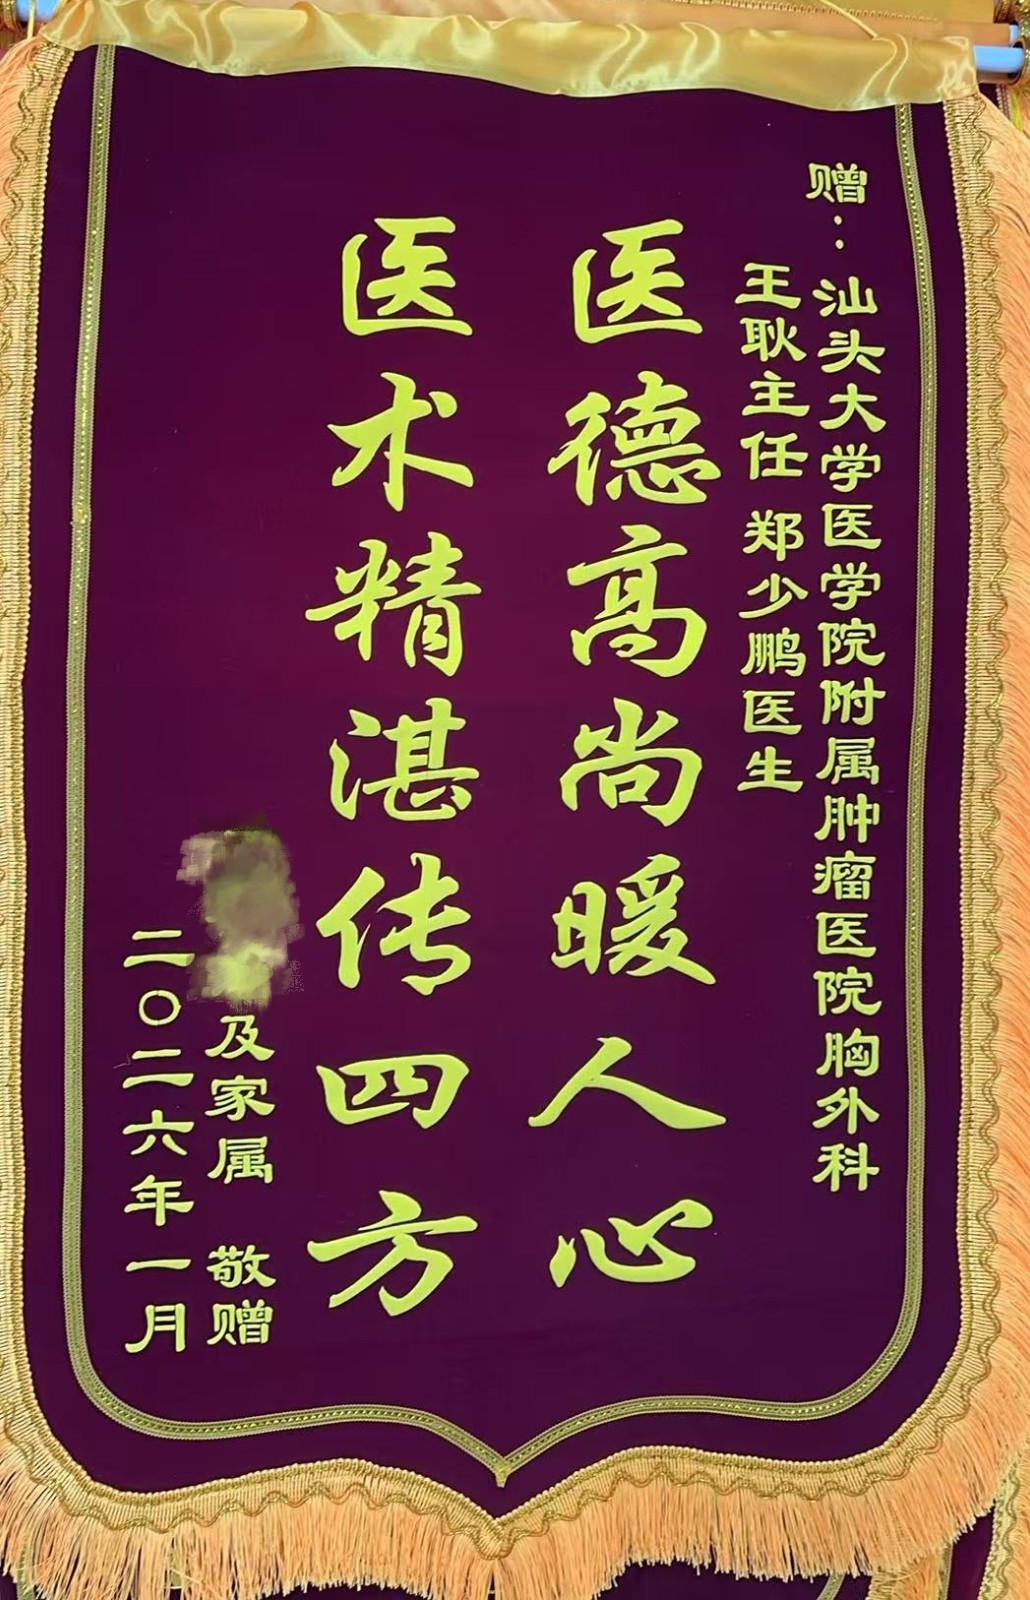 赠：汕头大学医学院附属肿瘤医院胸外科
王耿主任 郑少鹏医生
医德高尚暖人心
医术精湛传四方
及家属 敬赠
二〇二六年一月